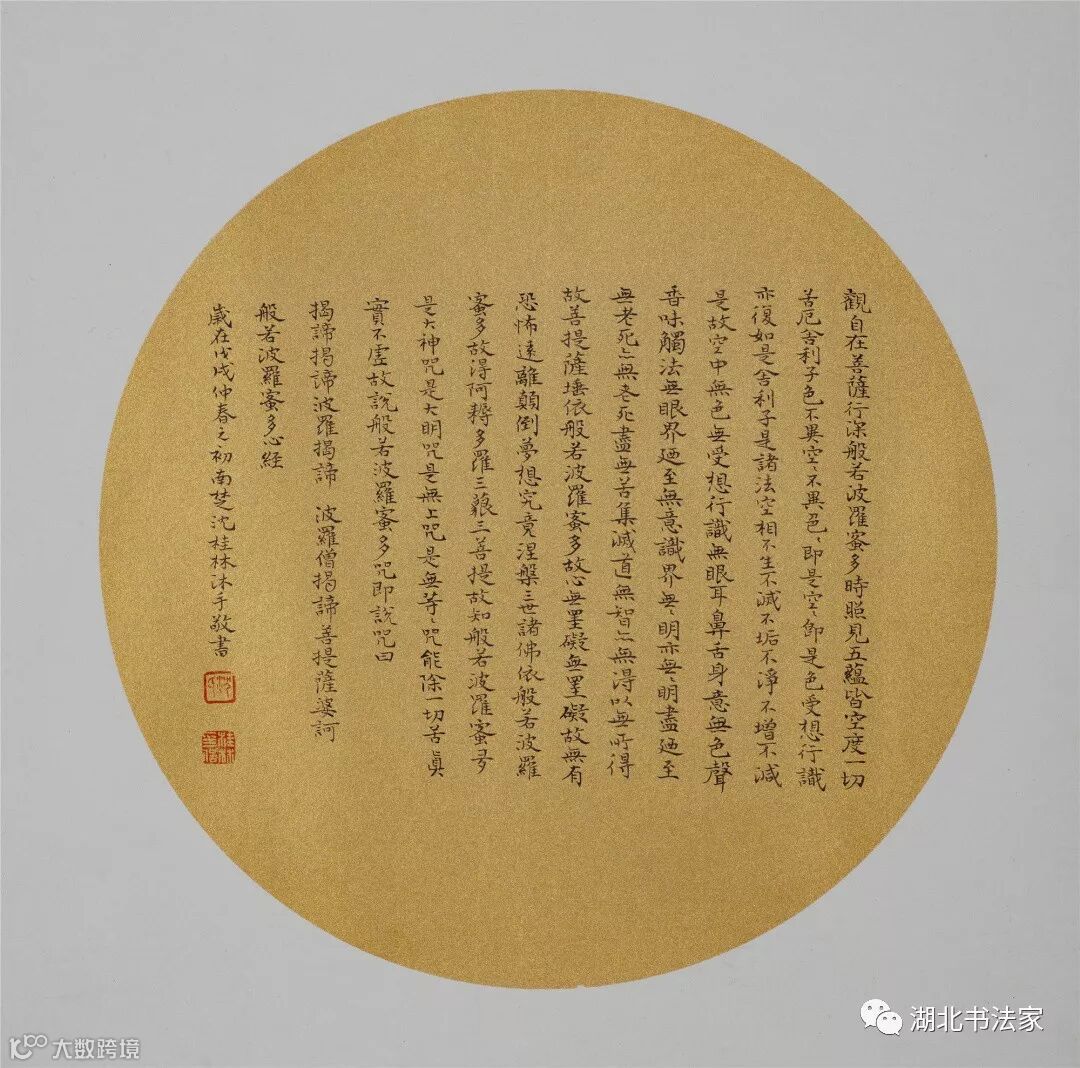 觀自在菩薩行深般若波羅蜜多時照見五蘊皆空度一切
苦厄舍利子色不異空〻不異色〻即是空〻即是色受想行識
亦復如是舍利子是諸法空相不生不滅不垢不淨不增不減
是故空中無色無受想行識無眼耳鼻舌身意無色聲
香味觸法無眼界廼至無意識界無〻明亦無〻明盡廼至
無老死亦無老死盡無苦集滅道無智亦無得以無所得
故菩提薩埵依般若波羅蜜多故心無罣礙無罣礙故無有
恐怖遠離顛倒夢想究竟涅槃三世諸佛依般若波羅
蜜多故得阿耨多羅三藐三菩提故知般若波羅蜜多
是大神咒是大明咒是無上咒是無等〻咒能除一切苦真
實不虛故說般若波羅蜜多咒即說咒曰
揭諦揭諦波羅揭諦 波羅僧揭諦菩提薩婆訶
般若波羅蜜多心經
歲在戊戌仲春之初南楚沈桂林沐手敬書
湖北书法家
大数跨境